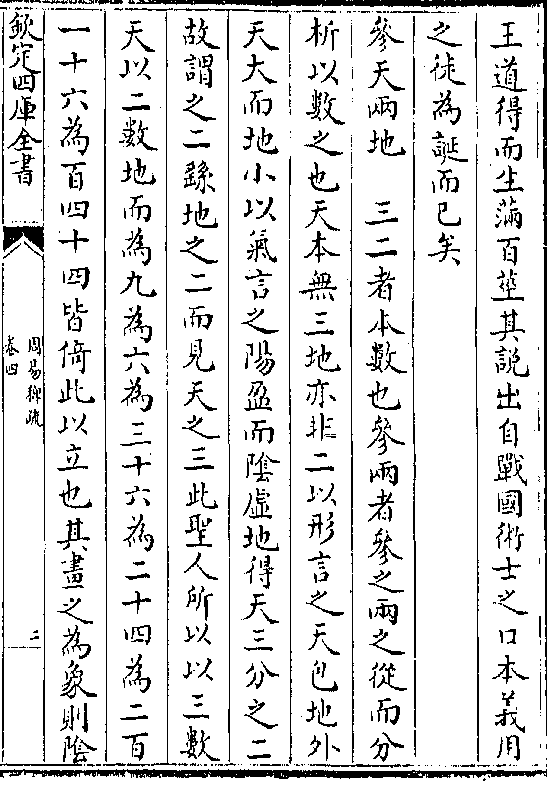 王道得而生滿百莖其説出自戰國術士之口本義用
之徒為誕而已矣
參天兩地　三二者本數也參兩者參之兩之從而分
析以數之也天本無三地亦非二以形言之天包地外
天大而地小以氣言之陽盈而陰虛地得天三分之二
故謂之二繇地之二而見天之三此聖人所以以三數
天以二數地而為九為六為三十六為二十四為二百
一十六為百四十四皆倚此以立也其畫之為象則陰
欽定四庫全書
周易稗疏
卷四
二